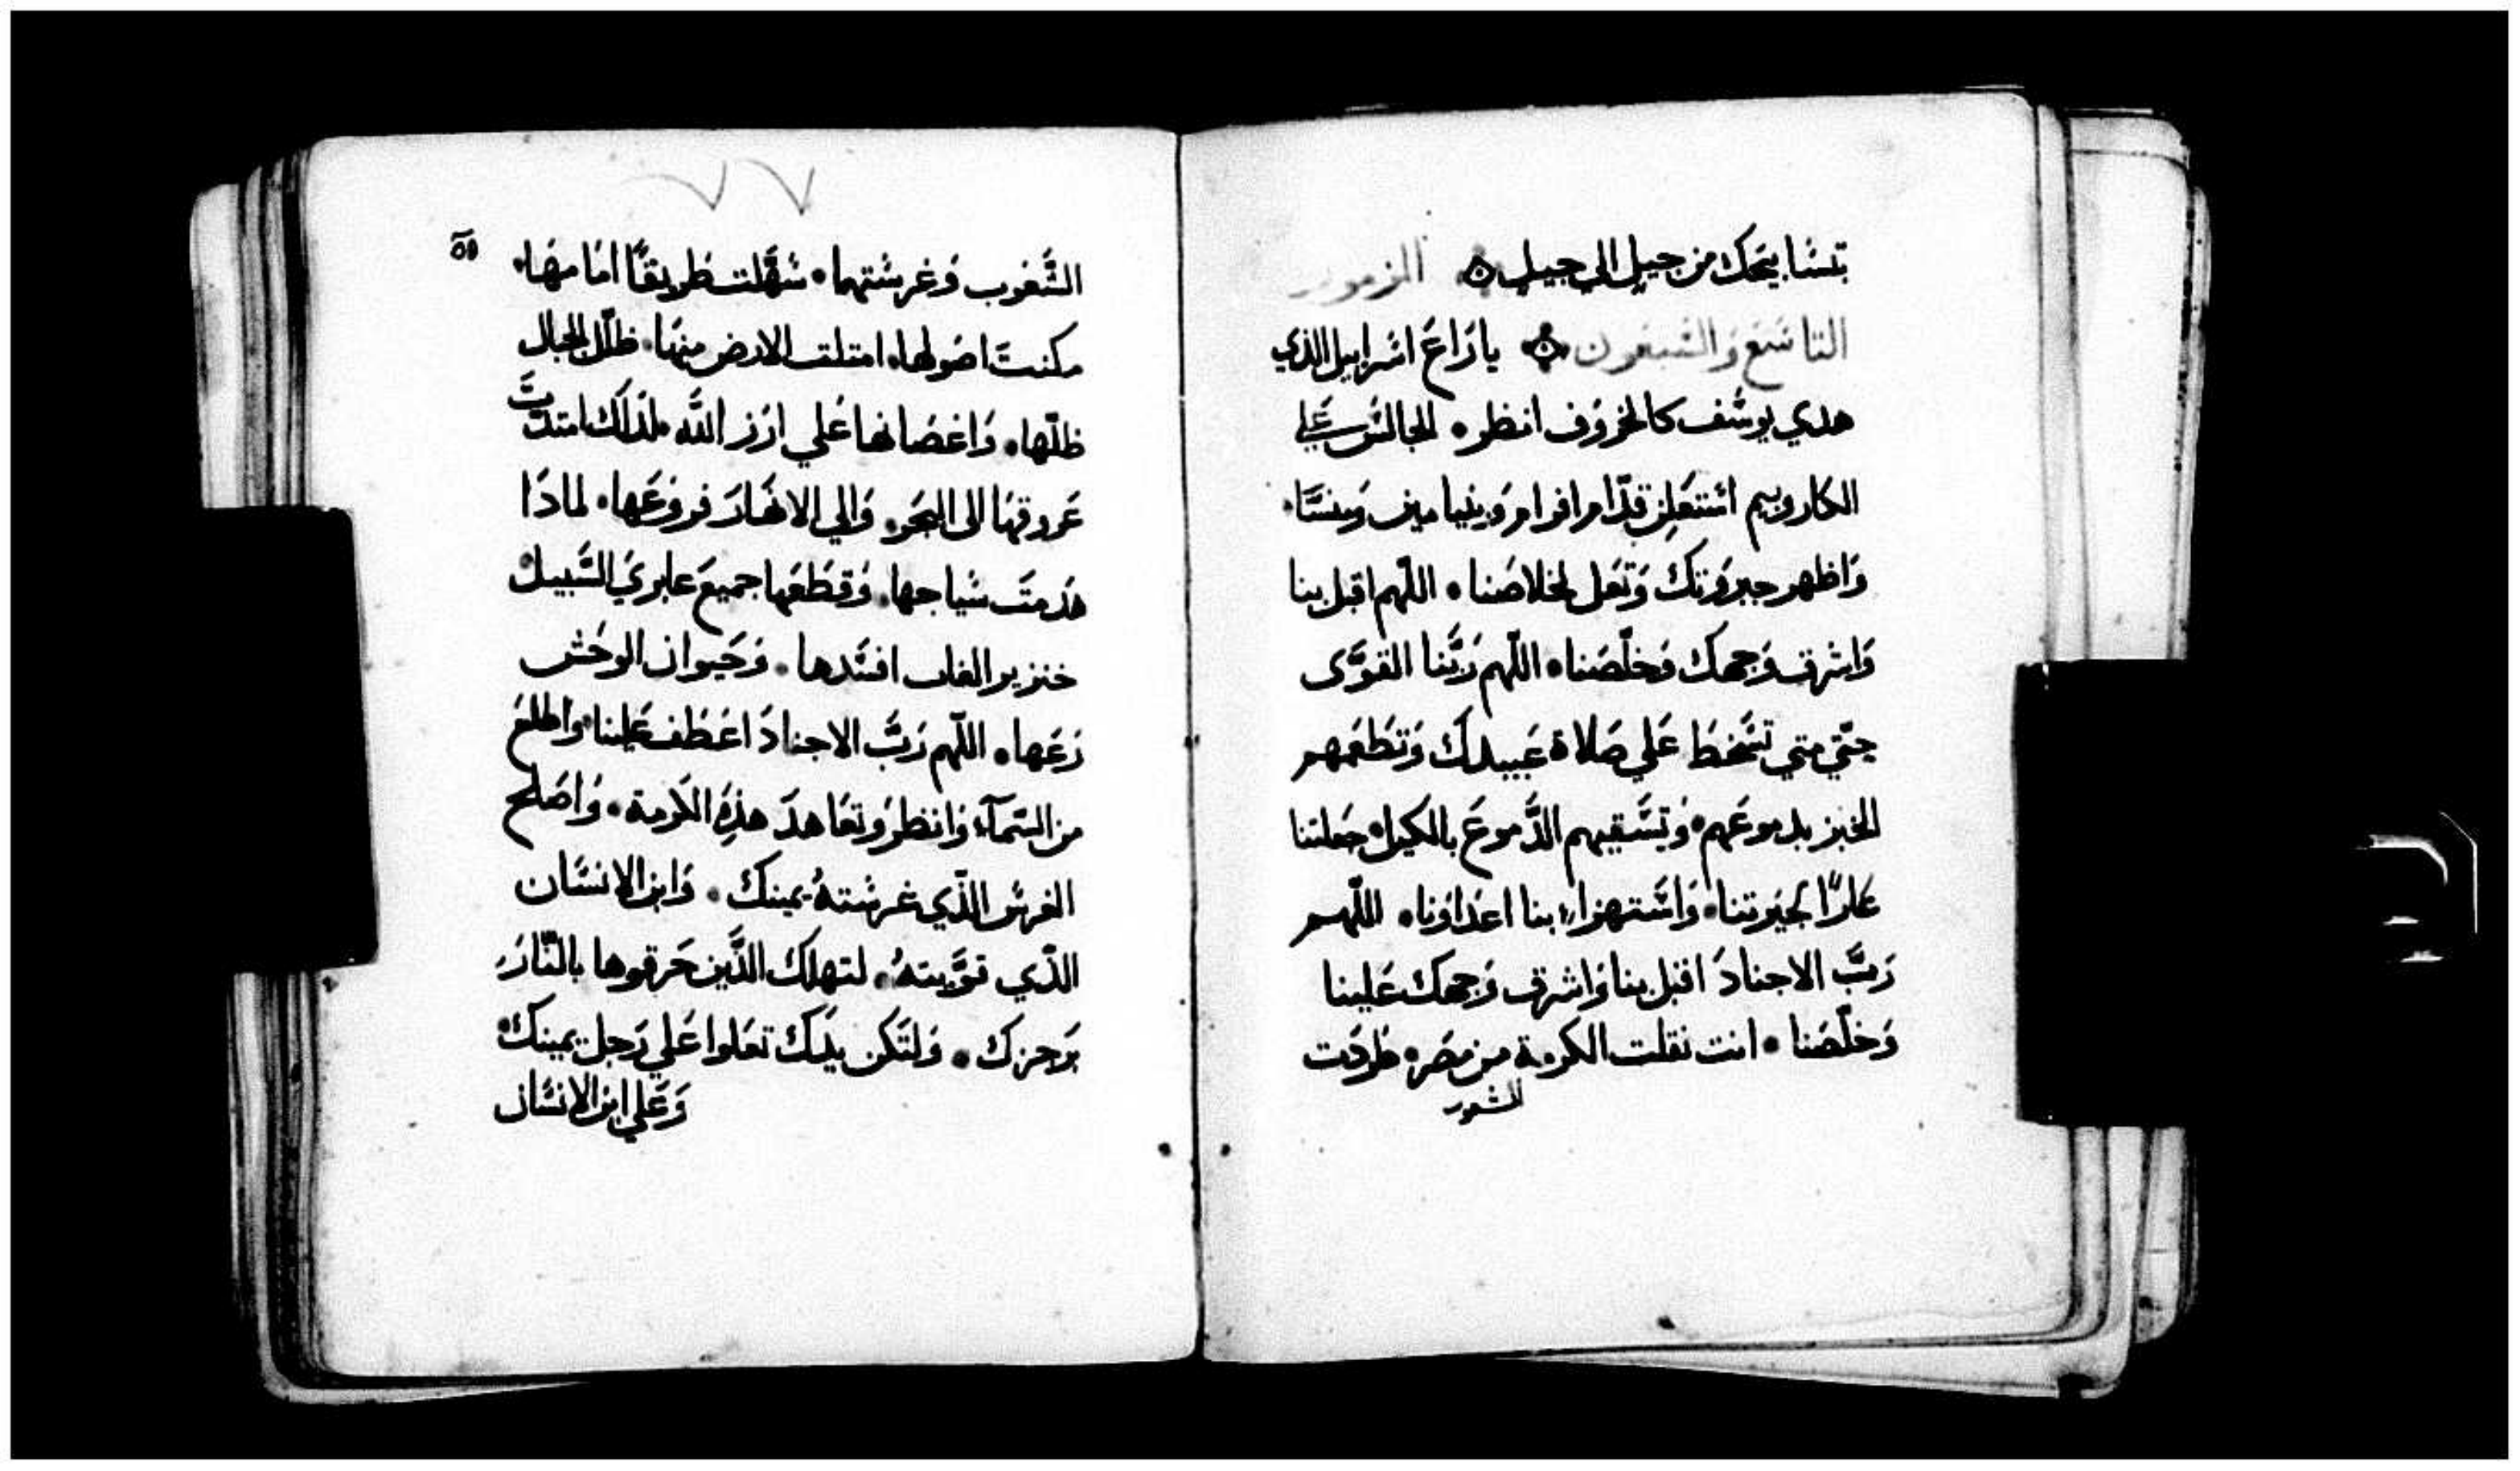 بتسابيحك من جيل الي جيل المزمور
التاسع والسبعون يا راع اسراييل الذي
هدي يوسف كالخروف انظر الجالس علي
الكاروبيم استعلن قدام افرام وبنيامين ومنسا
واظهر جبروتك وتعل لخلاصنا اللهم اقبل بنا
واشرق وجهك وخلّصنا اللّهم ربّنا القوّي
حتّي متي تسخط علي صلاة عبيدك وتطعمهم
الخبز بدموعهم وتسقيهم الدّموع بالكيل جعلتنا
عارًا لجيرتنا واستهزاء بنا اعداونا اللّهم
ربّ الاجناد اقبل بنا واشرق وجهك علينا
وخلّصنا انت نقلت الكرمة من مصر طردت
الشعوب
٧٧
٥٩
الشّعوب وغرستهما سهّلت طريقًا امامها
مكنت اصولها امتلت الارض منها ظلّل الجبال
ظلّها واغصانها علي ارز اللّه لذلك امتدّت
عروقها الى البحر والي الانهار فروعها لماذا
هدمت سياجها وقطعها جميع عابري السّبيل
خنزير الغاب افسدها وحيوان الوحش
رعها اللّهم ربّ الاجناد اعطف علينا واطلع
من السّمآء وانظر وتعاهد هذه الكرمة واصلح
الغرس الذّي غرسته يمينك وابن الانسان
الذّي قوّيته لتهلك الذّين حرقوها بالنّار
بزجرك ولتكن يدك تعلوا علي رجل يمينك
وعلي ابن الانسان